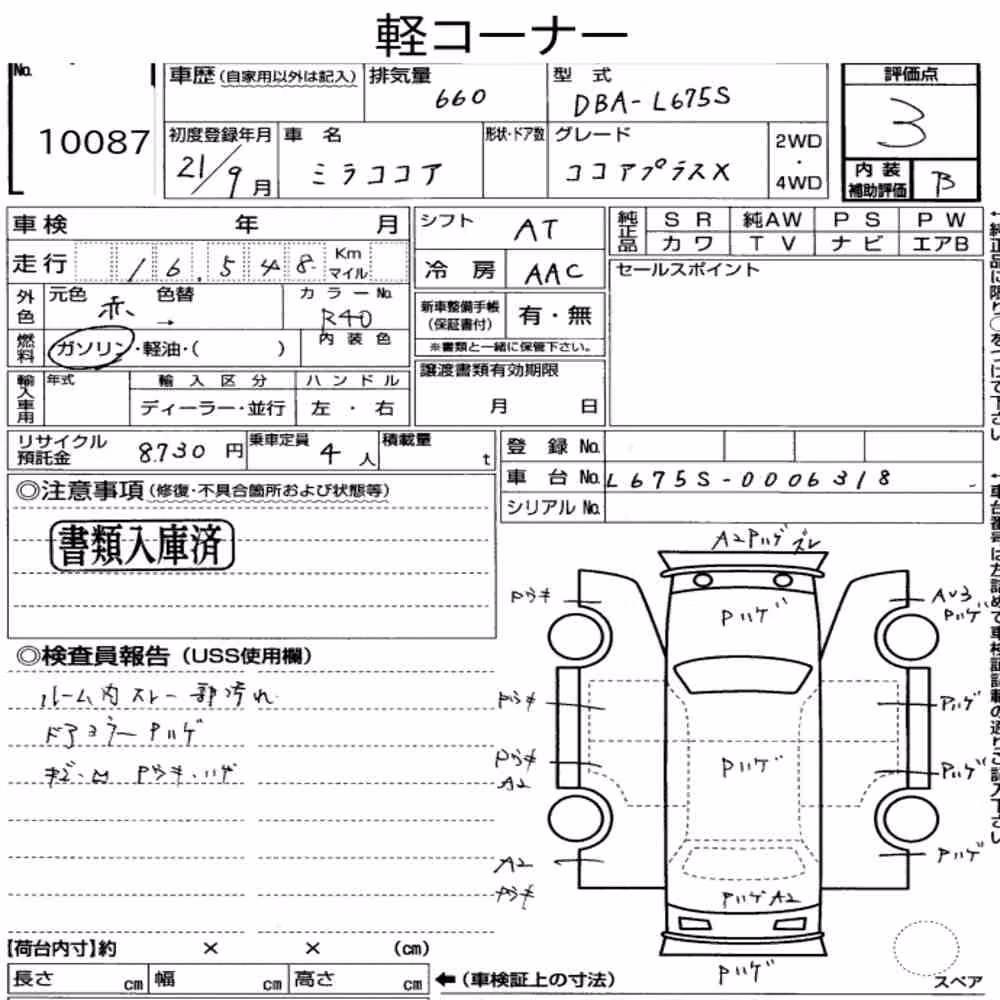 軽コーナー
No.
10087
車歴(自家用以外は記入)
排気量
660
型 式
DBA-L675S
評価点
3
初度登録年月
21/9月
車 名
ミラココア
形状・ドア数
グレード
ココアプラスX
2WD
・
4WD
内 装
補助評価
B
車検 年 月
走行 16,548 Km
マイル
外色
元色 赤
色替 →
カラーNo.
R40
燃料
ガソリン・軽油・( )
内装色
輸入車用
年式
輸入区分
ディーラー・並行
ハンドル
左・右
シフト
AT
冷房
AAC
新車整備手帳
(保証書付)
有・無
※書類と一緒に保管下さい。
譲渡書類有効期限
月 日
純正品
SR 純AW PS PW
カワ TV ナビ エアB
セールスポイント
リサイクル
預託金
8.730 円
乗車定員
4 人
積載量
t
登録No.
車台No. L675S-0006318
シリアルNo.
◎注意事項(修復・不具合箇所および状態等)
書類入庫済
◎検査員報告(USS使用欄)
ルーム内スレ一部汚れ
ドアミラーPハゲ
Pウキ.ハゲ
A2Pハゲズレ
Pウキ
Pハゲ
AU3
Pハゲ
Pウキ
Pハゲ
Pウキ
A2
Pハゲ
Pハゲ
A2
Pウキ
Pハゲ
PハゲA2
Pハゲ
スペア
【荷台内寸】約 × × (cm)
長さ cm 幅 cm 高さ cm
←(車検証上の寸法)
↑純正品に限り○をつけて下さい